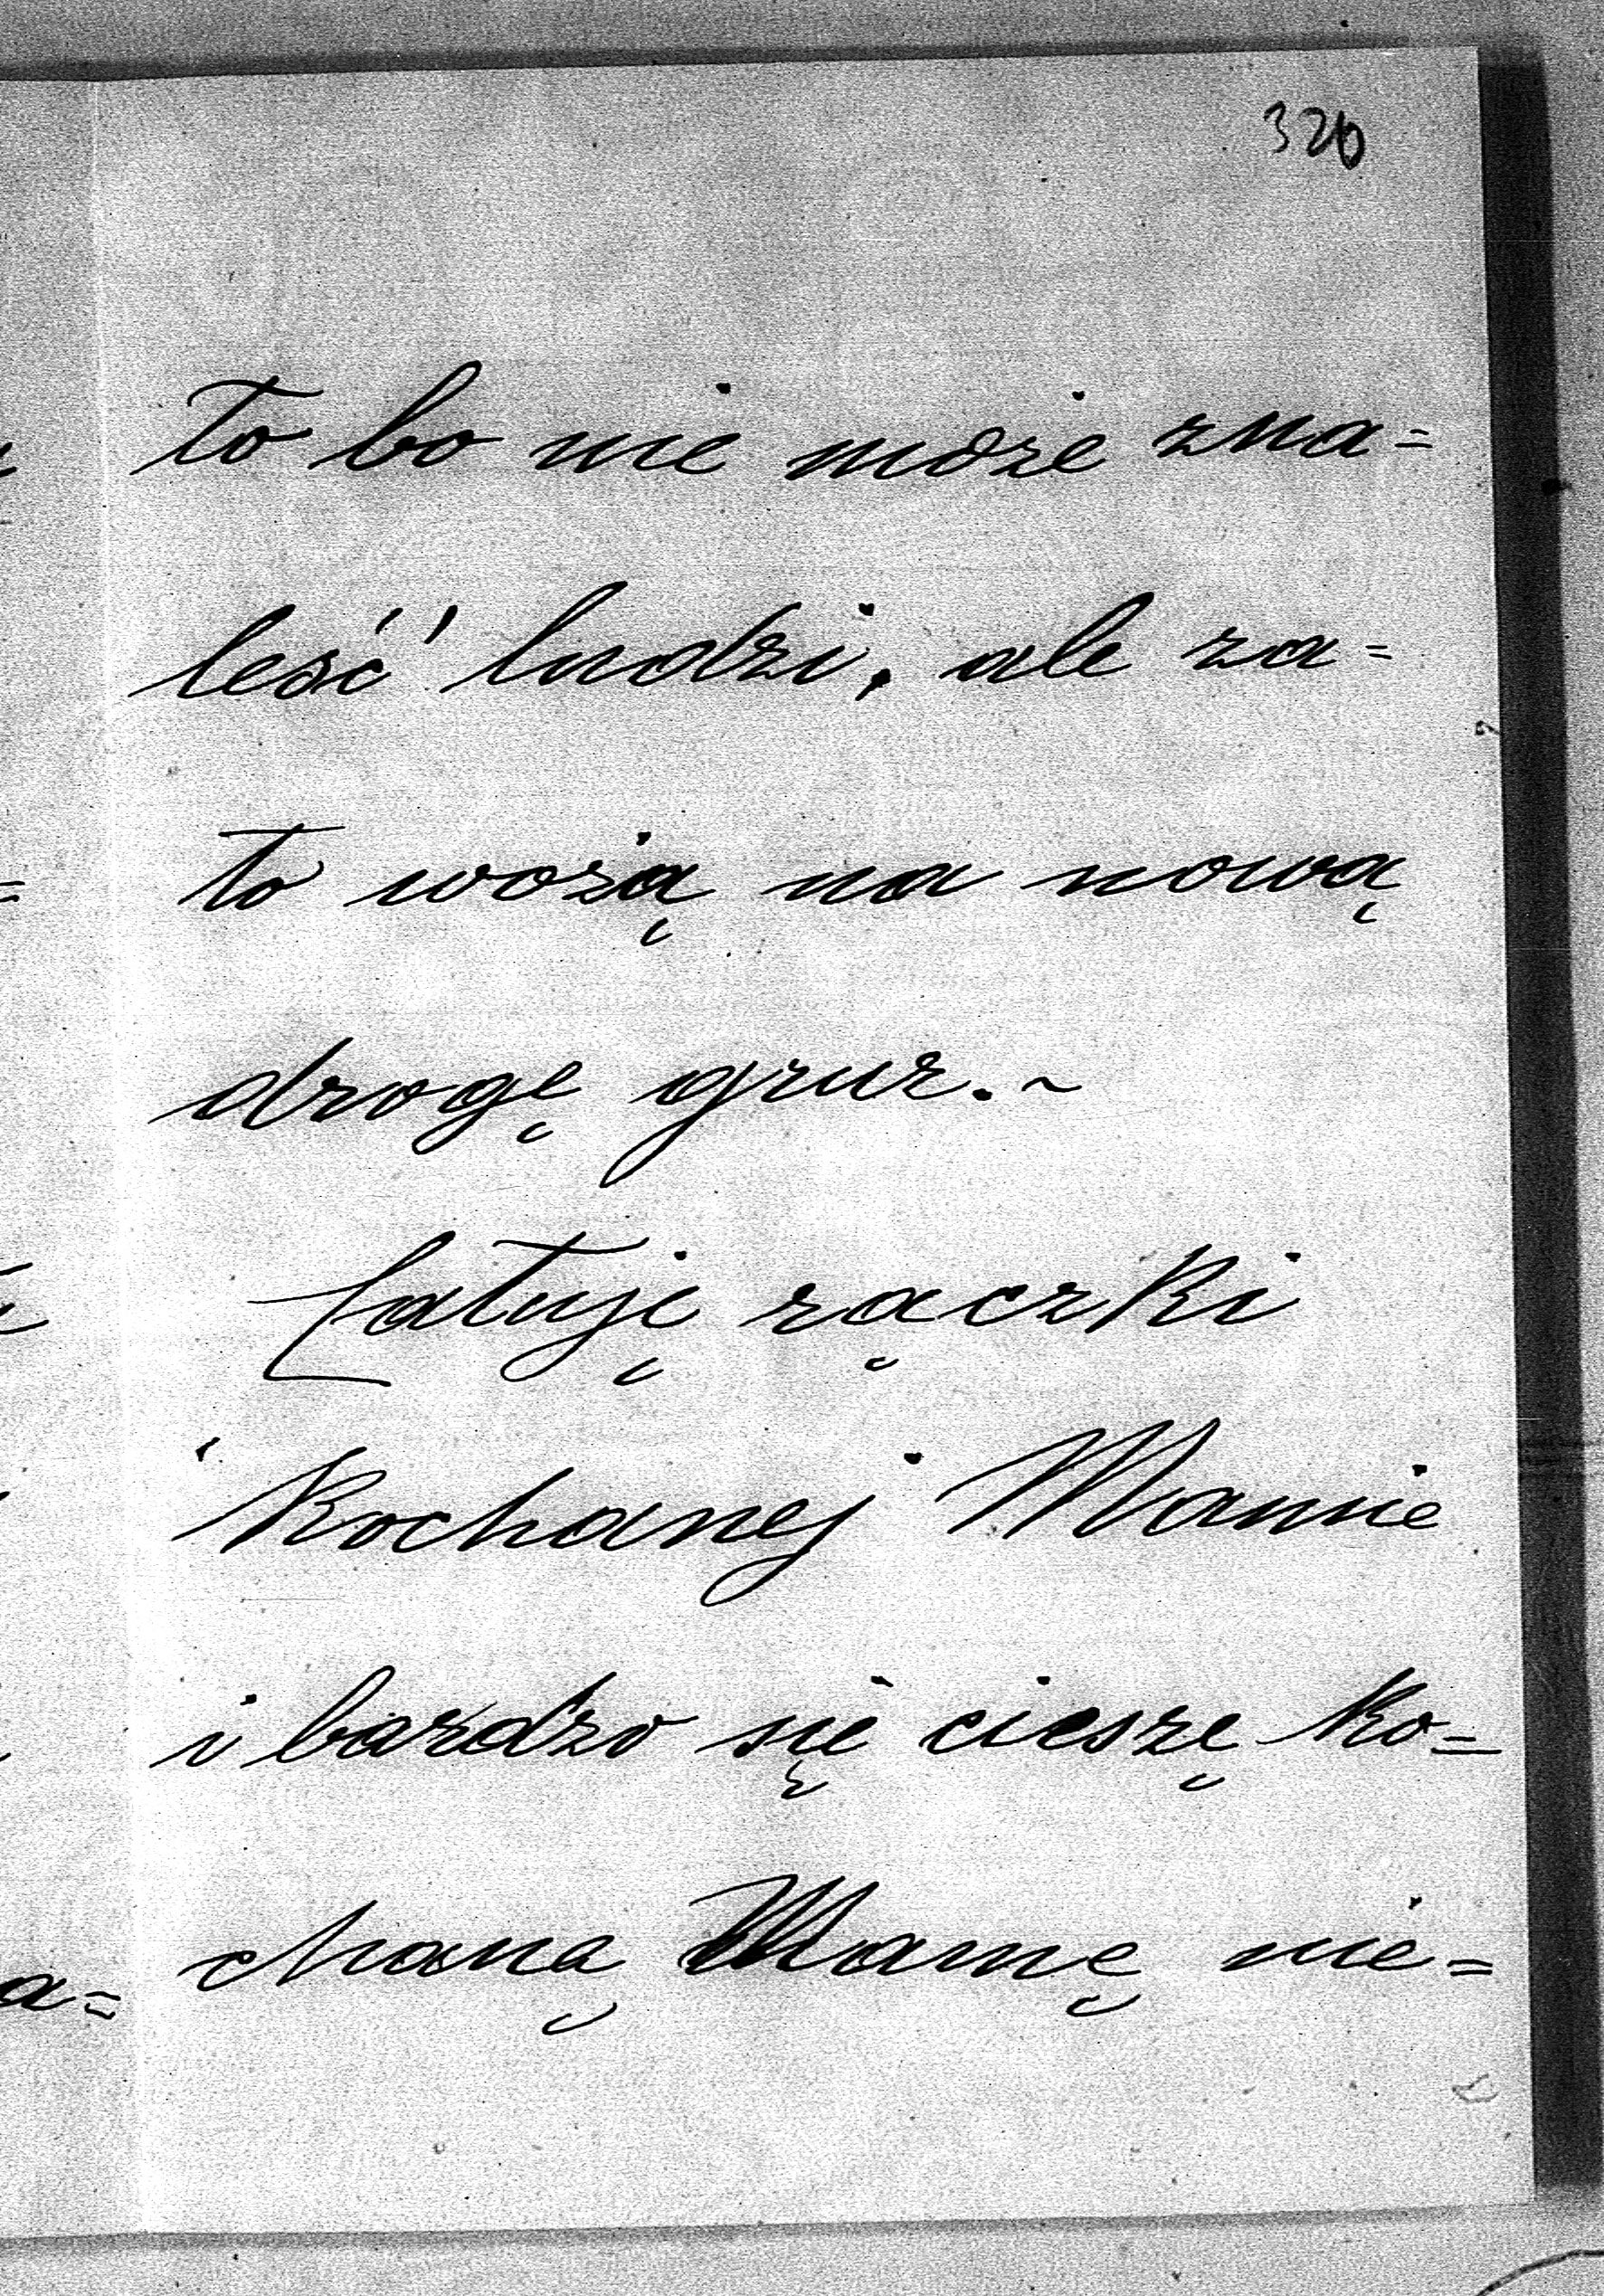 320
to bo nie może zna=
leść ludzi, ale za=
to wożą na nową
drogę gruz.~
Całuję rączki
kochanej Mamie
i bardzo się cieszę ko=
chaną Mamę nie=